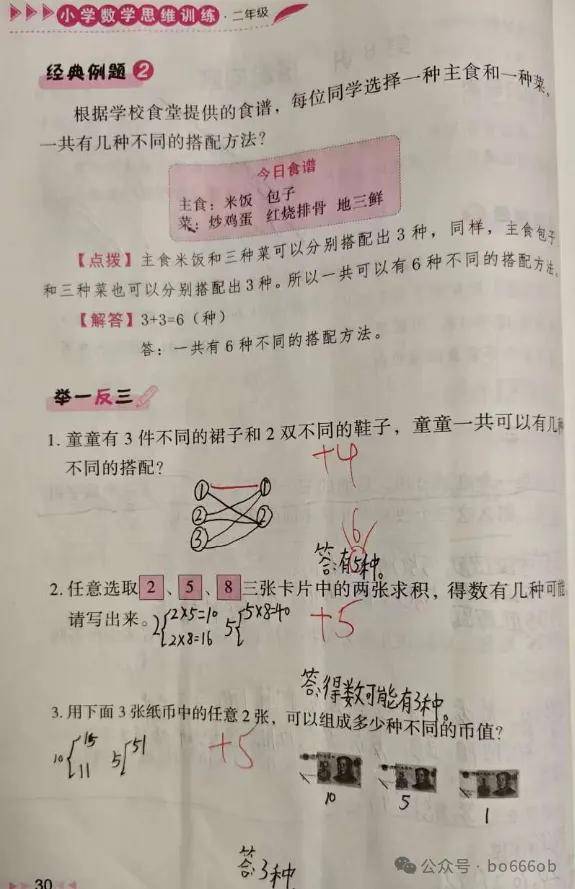 小学数学思维训练·二年级
经典例题2
根据学校食堂提供的食谱，每位同学选择一种主食和一种菜，
一共有几种不同的搭配方法？
今日食谱
主食：米饭 包子
菜：炒鸡蛋 红烧排骨 地三鲜
【点拨】主食米饭和三种菜可以分别搭配出3种，同样，主食包子
和三种菜也可以分别搭配出3种。所以一共可以有6种不同的搭配方法。
【解答】3+3=6（种）
答：一共有6种不同的搭配方法。
举一反三
1. 童童有3件不同的裙子和2双不同的鞋子，童童一共可以有几种
不同的搭配？
+4
1 1
2 2
3
6
答:有5种。
2. 任意选取 2、5、8 三张卡片中的两张求积，得数有几种可能
请写出来。
2 2×5=10 5 5×8=40
2×8=16
+5
答:得数可能有3种。
3. 用下面3张纸币中的任意2张，可以组成多少种不同的币值？
10 15 5 51
11
+5
10 5 1
答:3种
30
公众号·bo666ob